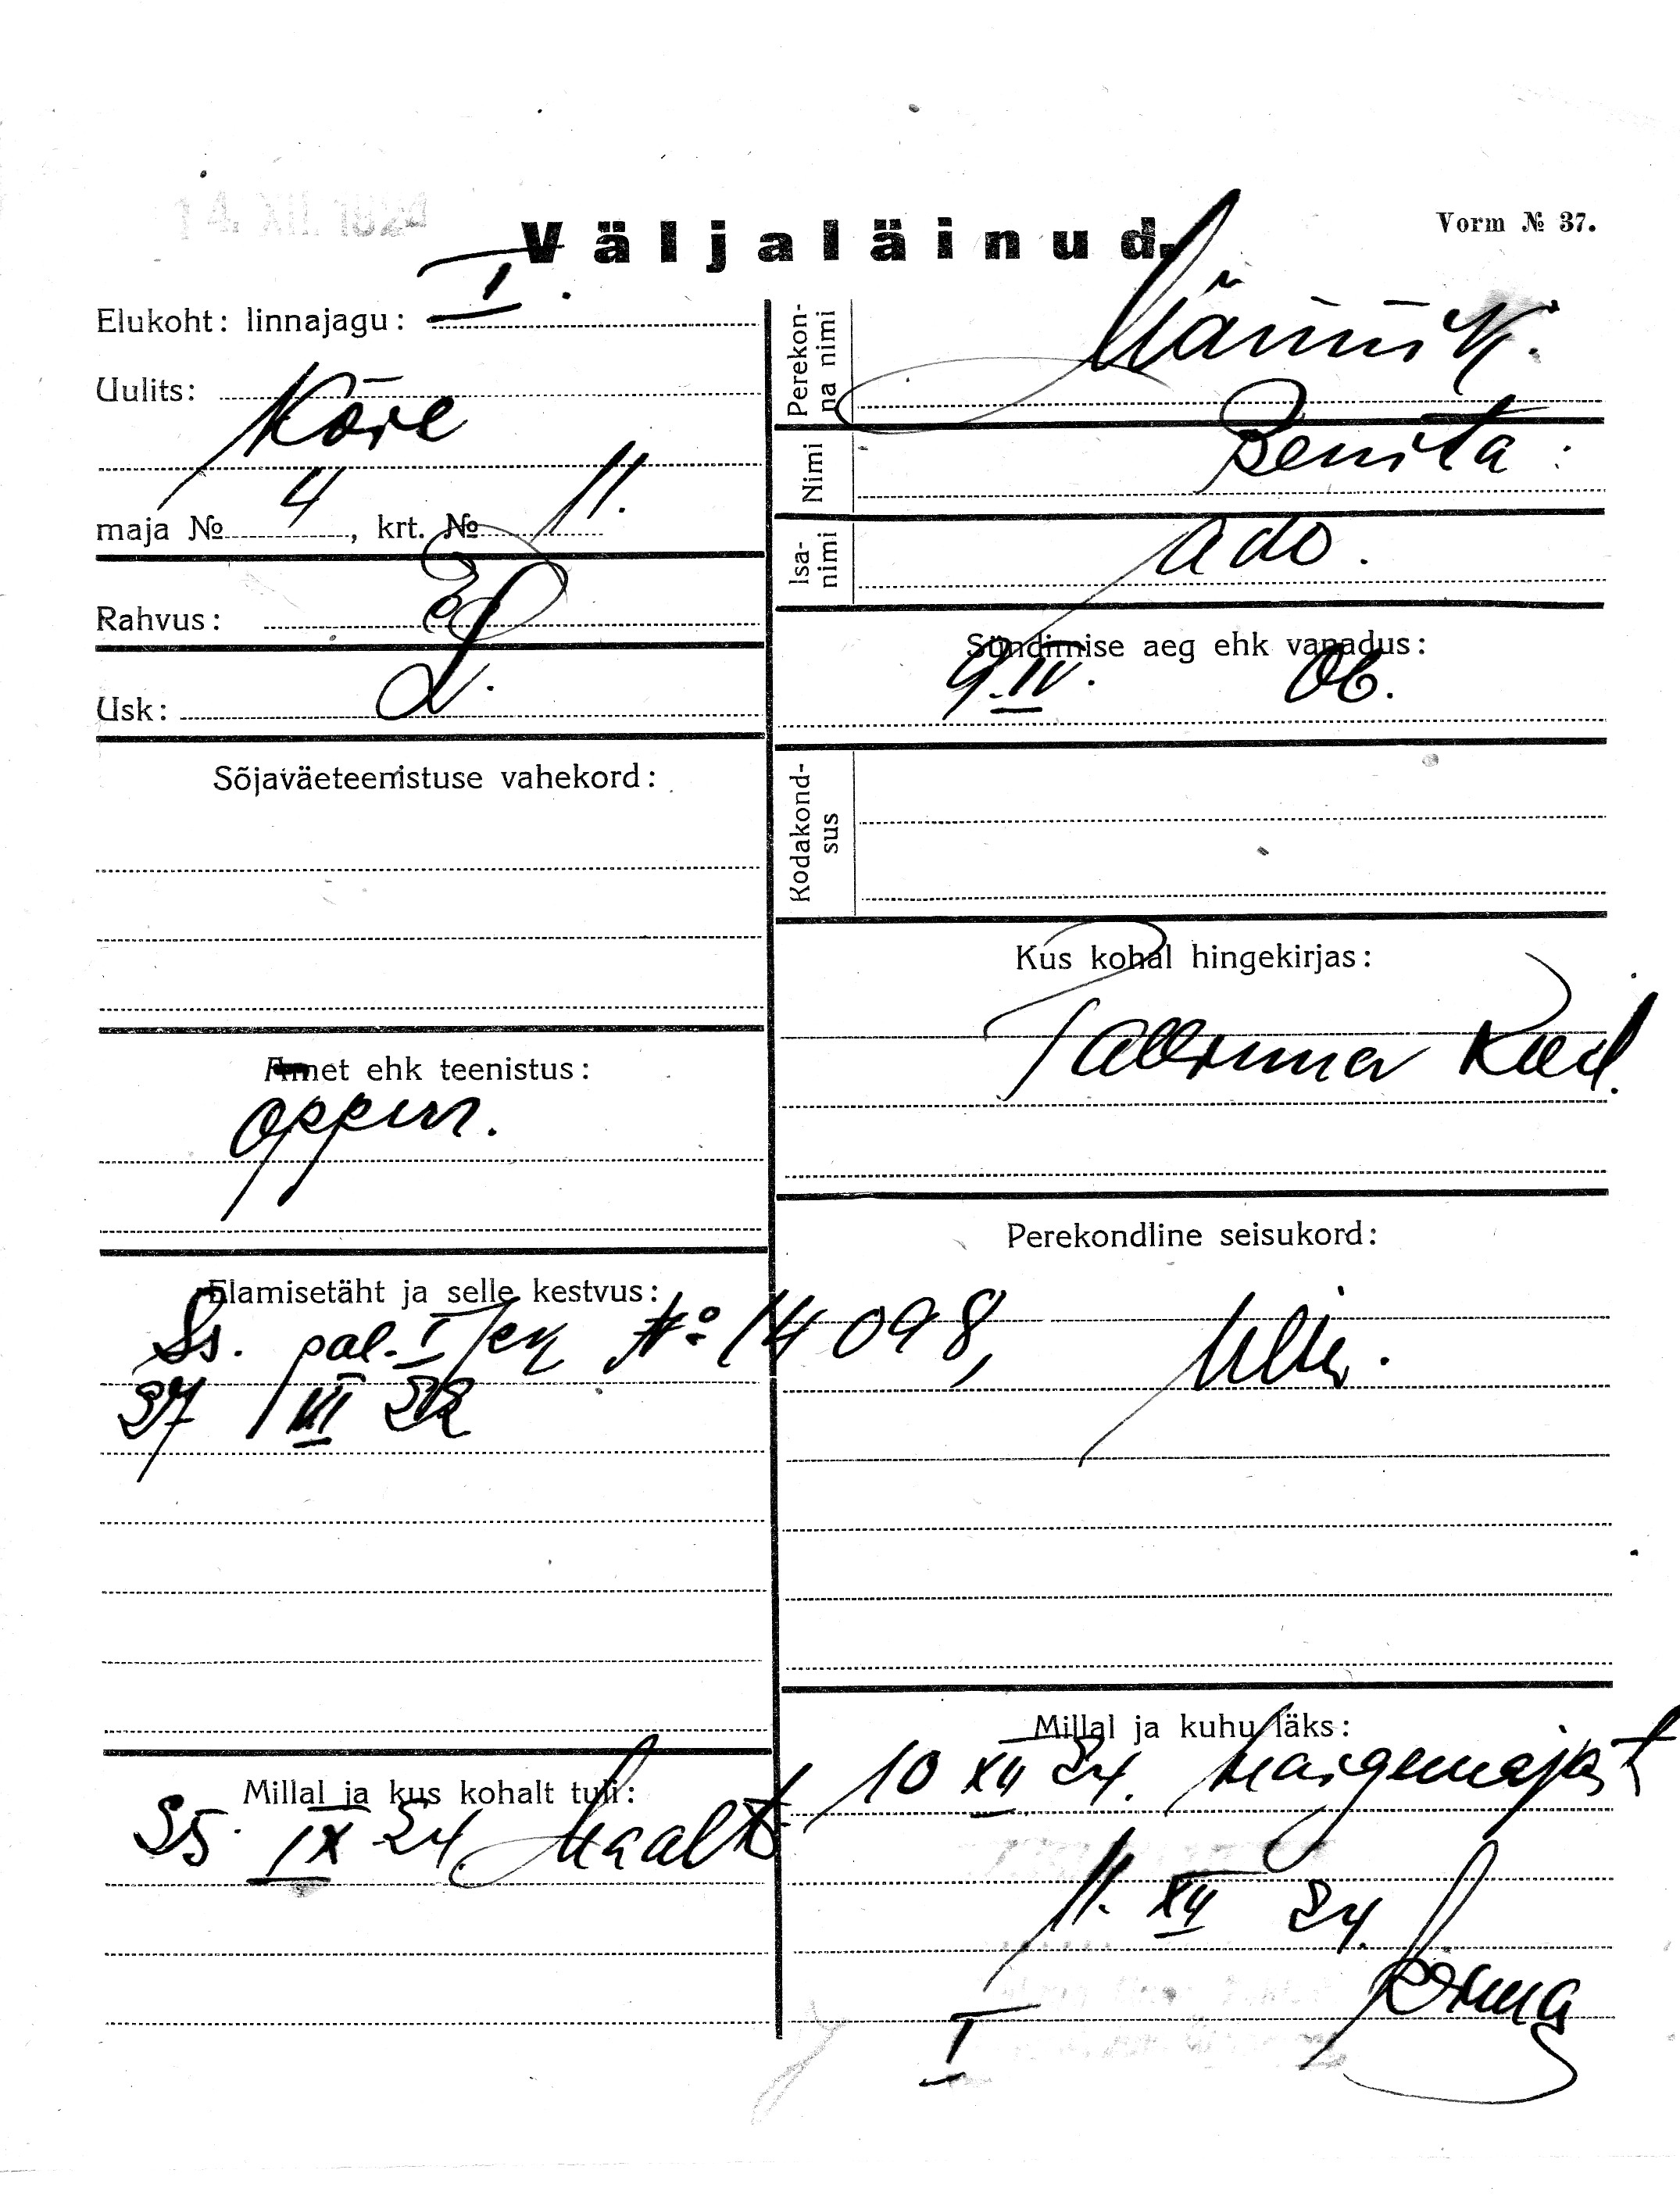 14. XII. 1924
Väljaläinud.
Vorm № 37.
Elukoht: linnajagu: I.
Uulits: Kõre
maja № 4, krt. № 11.
Rahvus: E
Usk: L.
Sõjaväeteenistuse vahekord:
Amet ehk teenistus:
õppur.
Elamisetäht ja selle kestvus:
Is. pal. I № 14098,
27 VII 22
Millal ja kus kohalt tuli:
25. IX 24. Maalt
Perekonna nimi Männik.
Nimi Benita
Isanimi Ado.
Sündimise aeg ehk vanadus:
9. IV. 06.
Kodakondsus
Kus kohal hingekirjas:
Tallinna
Perekondline seisukord:
Millal ja kuhu läks:
10 XII 24. haigemajast
11. XII 24.
I